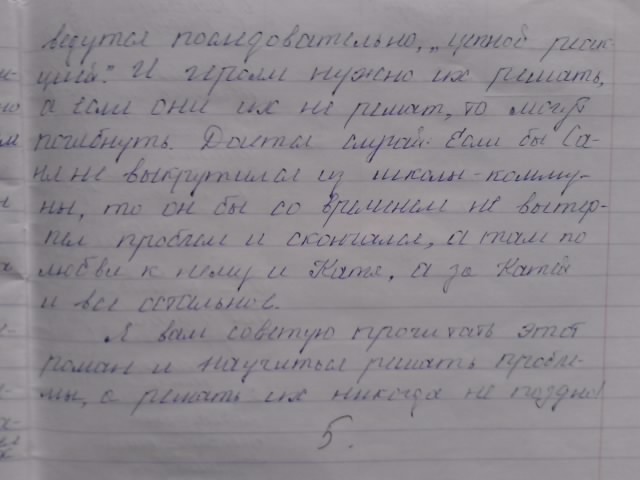 ведутся последовательно, „цепной реак-
цией." И героям нужно их решать,
а если они их не решат, то могут
погибнуть. Дается случай: Если бы Са-
ня не выкрутился из школы-комму-
ны, то он бы со временем не вытер-
пел проблем и скончался, а там по
любви к нему и Катя, а за Катей
и все остальное.
Я вам советую прочитать этот
роман и научиться решать пробле-
мы, а решать их никогда не поздно!
5.